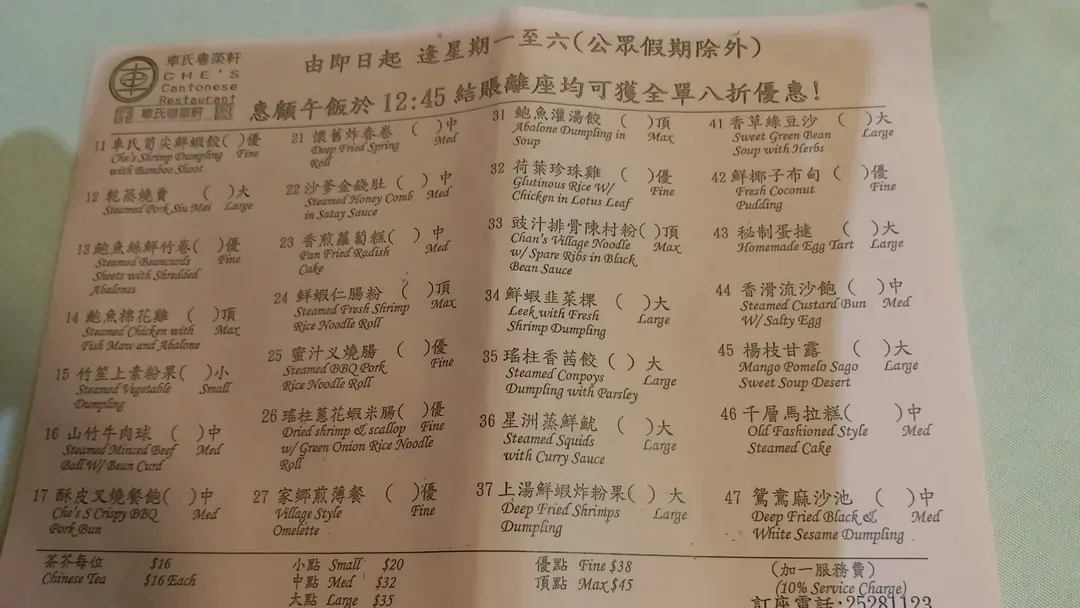 車氏粵菜軒
CHE'S
Cantonese
Restaurant
車氏粵菜軒
由即日起 逢星期一至六(公眾假期除外)
惠顧午飯於 12:45 結賬離座均可獲全單八折優惠!
11 車氏筍尖鮮蝦餃( )優
Che's Shrimp Dumpling Fine
with Bamboo Shoot
12 乾蒸燒賣 ( )大
Steamed Pork Siu Mei Large
13 鮑魚絲鮮竹卷( )優
Steamed Beancurds Fine
Sheets with Shredded
Abalones
14 鮑魚棉花雞 ( )頂
Steamed Chicken with Max
Fish Maw and Abalone
15 竹笙上素粉果( )小
Steamed Vegetable Small
Dumpling
16 山竹牛肉球 ( )中
Steamed Minced Beef Med
Ball W/ Bean Curd
17 酥皮叉燒餐飽( )中
Che's S Crispy BBQ Med
Pork Bun
21 懷舊炸春卷 ( )中
Deep Fried Spring Med
Roll
22 沙爹金錢肚 ( )中
Steamed Honey Comb Med
in Satay Sauce
23 香煎蘿蔔糕( )中
Pan Fried Radish Med
Cake
24 鮮蝦仁腸粉 ( )頂
Steamed Fresh Shrimp Max
Rice Noodle Roll
25 蜜汁叉燒腸 ( )優
Steamed BBQ Pork Fine
Rice Noodle Roll
26 瑤柱蔥花蝦米腸( )優
Dried shrimp & scallop Fine
w/ Green Onion Rice Noodle
Roll
27 家鄉煎薄餐 ( )優
Village Style Fine
Omelette
31 鮑魚灌湯餃 ( )頂
Abalone Dumpling in Max
Soup
32 荷葉珍珠雞 ( )優
Glutinous Rice W/ Fine
Chicken in Lotus Leaf
33 豉汁排骨陳村粉( )頂
Chan's Village Noodle Max
w/ Spare Ribs in Black
Bean Sauce
34 鮮蝦韭菜粿 ( )大
Leek with Fresh Large
Shrimp Dumpling
35 瑤柱香茜餃 ( )大
Steamed Conpoys Large
Dumpling with Parsley
36 星洲蒸鮮魷 ( )大
Steamed Squids Large
with Curry Sauce
37 上湯鮮蝦炸粉果( )大
Deep Fried Shrimps Large
Dumpling
41 香草綠豆沙 ( )大
Sweet Green Bean Large
Soup with Herbs
42 鮮椰子布甸 ( )優
Fresh Coconut Fine
Pudding
43 秘制蛋撻 ( )大
Homemade Egg Tart Large
44 香滑流沙飽 ( )中
Steamed Custard Bun Med
W/ Salty Egg
45 楊枝甘露 ( )大
Mango Pomelo Sago Large
Sweet Soup Desert
46 千層馬拉糕( )中
Old Fashioned Style Med
Steamed Cake
47 鴛鴦麻沙池 ( )中
Deep Fried Black & Med
White Sesame Dumpling
茶芥每位 $16
Chinese Tea $16 Each
小點 Small $20
中點 Med $32
大點 Large $35
優點 Fine $38
頂點 Max $45
(加一服務費)
(10% Service Charge)
訂座電話:25281123